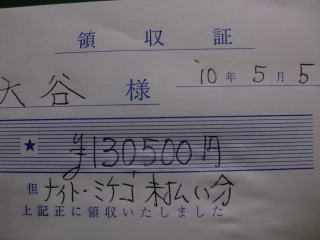 領収証
大谷 様
10年5月5
★ ¥130500円
但 ナイト・ミケゴ 未払い分
上記正に領収いたしました